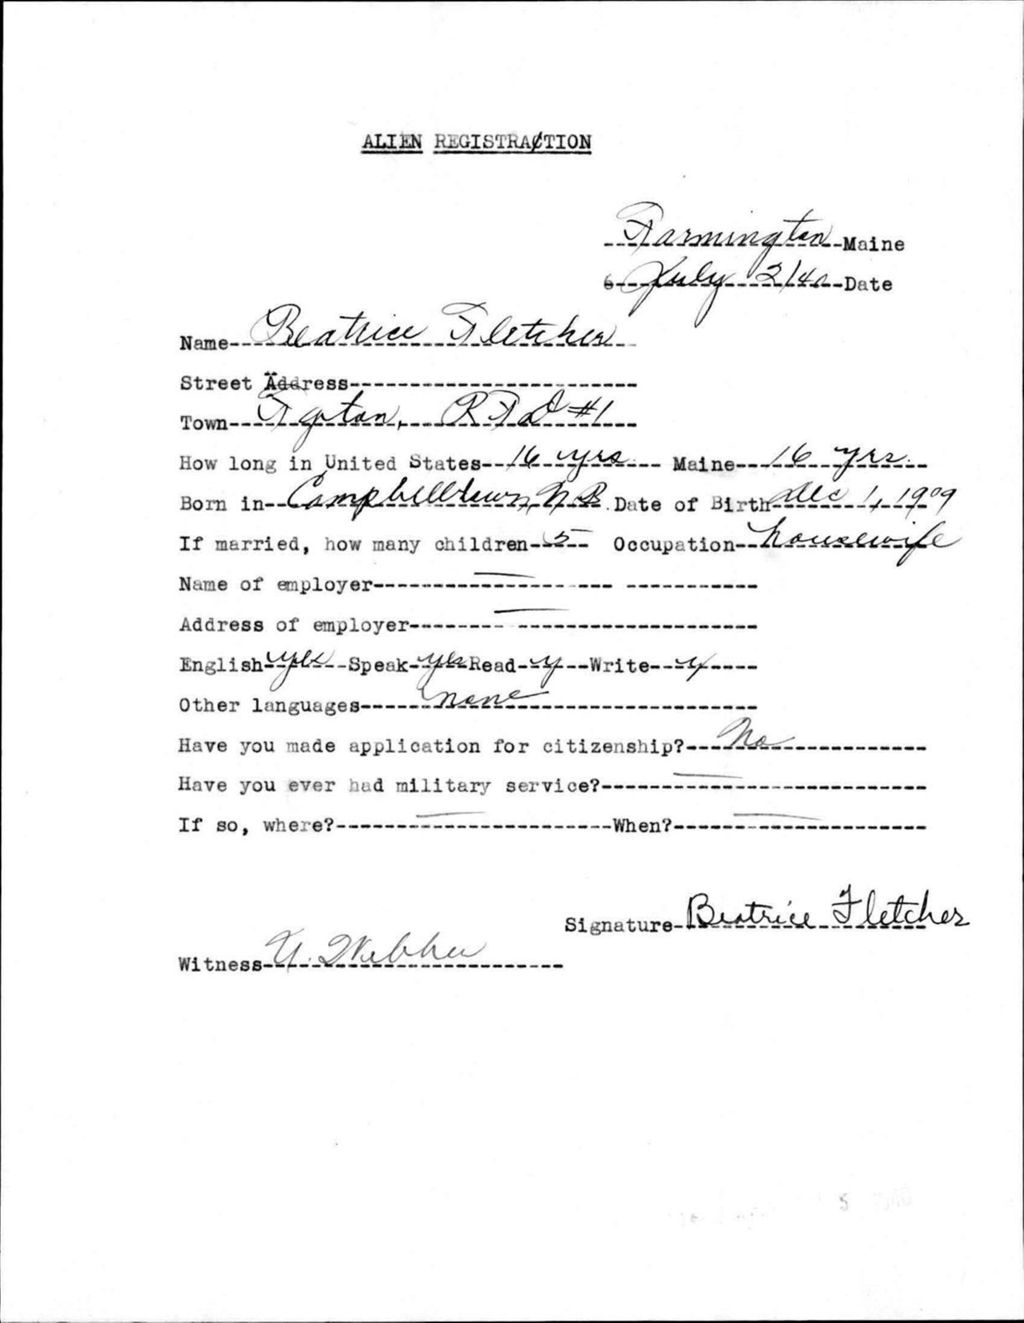 ALIEN REGISTRACTION
Farmington Maine
July 2/40 Date
Name Beatrice Fletcher
Street Address
Town RFD #1
How long in United States 16 yrs Maine 16 yrs.
Born in Campbelltown, N.B. Date of Birth Dec 1, 1909
If married, how many children 5 Occupation housewife
Name of employer —
Address of employer —
English yes Speak yes Read y Write y
Other languages none
Have you made application for citizenship? No
Have you ever had military service? —
If so, where? — When? —
Signature Beatrice Fletcher
Witness Webber